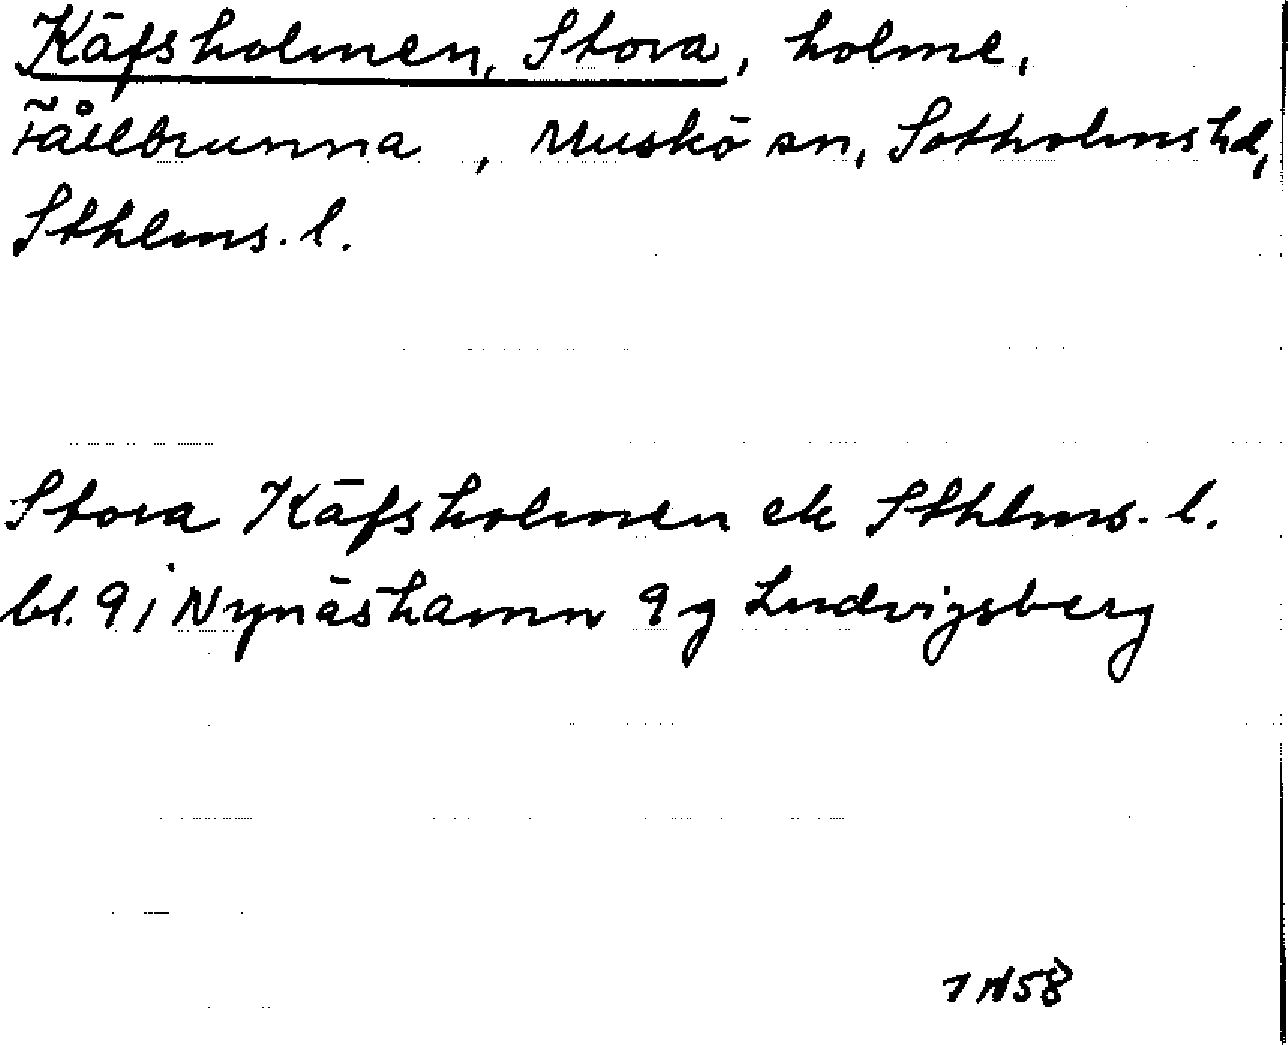 Käfsholmen, Stora, holme,
Fållbrunna, Muskö sn, Sotholms hd,
Sthlms. l.
Stora Käfsholmen ek Sthlms. l.
bl. 9 i Nynäshamn 9 g Ludvigsberg
58